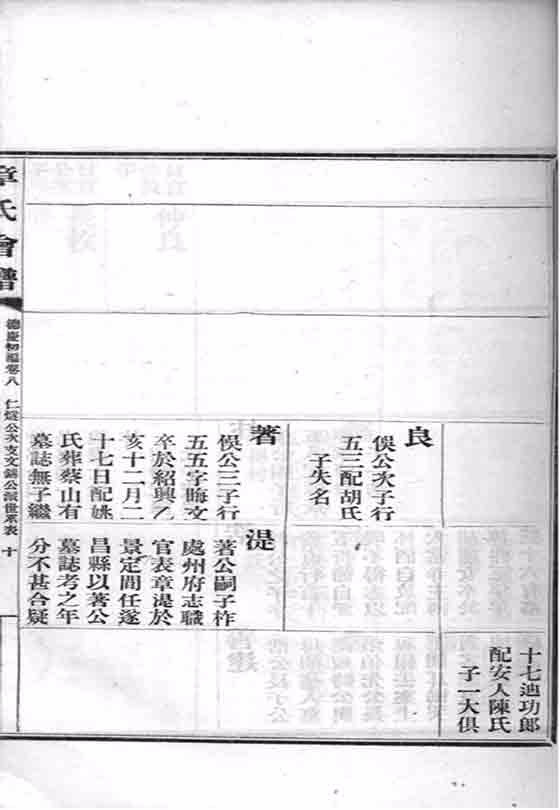 十七迪功郎
配安人陳氏
子一大俱
良
俁公次子行
五三配胡氏
子失名
著
俁公三子行
五五字晦文
卒於紹興乙
亥十二月二
十七日配姚
氏葬蔡山有
墓誌無子繼
湜
著公嗣子柞
處州府志職
官表章湜於
景定間任遂
昌縣以著公
墓誌考之年
分不甚合疑
章氏會譜
德慶初編卷八 仁燧公次支文錦公派世系表 十